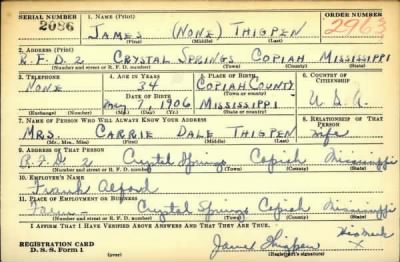 SERIAL NUMBER 1. NAME (Print) ORDER NUMBER
2086 JAMES (NONE) THIGPEN 2963
(First) (Middle) (Last)
2. ADDRESS (Print)
R.F.D. 2 CRYSTAL SPRINGS COPIAH MISSISSIPPI
(Number and street or R. F. D. number) (Town) (County) (State)
3. TELEPHONE 4. AGE IN YEARS 5. PLACE OF BIRTH 6. COUNTRY OF CITIZENSHIP
NONE 34 COPIAH COUNTY
DATE OF BIRTH (Town or county)
May 7, 1906 MISSISSIPPI U.S.A.
(Exchange) (Number) (Mo.) (Day) (Yr.) (State or country)
7. NAME OF PERSON WHO WILL ALWAYS KNOW YOUR ADDRESS 8. RELATIONSHIP OF THAT PERSON
MRS. CARRIE DALE THIGPEN wife
(Mr., Mrs., Miss) (First) (Middle) (Last)
9. ADDRESS OF THAT PERSON
R.F.D. 2 Crystal Springs Copiah Mississippi
(Number and street or R. F. D. number) (Town) (County) (State)
10. EMPLOYER'S NAME
Frank Alford
11. PLACE OF EMPLOYMENT OR BUSINESS
Farm - Crystal Springs Copiah Mississippi
(Number and street or R. F. D. number) (Town) (County) (State)
I AFFIRM THAT I HAVE VERIFIED ABOVE ANSWERS AND THAT THEY ARE TRUE.
His Mark
REGISTRATION CARD James Thigpen X
D. S. S. Form 1 (over) (Registrant's signature)